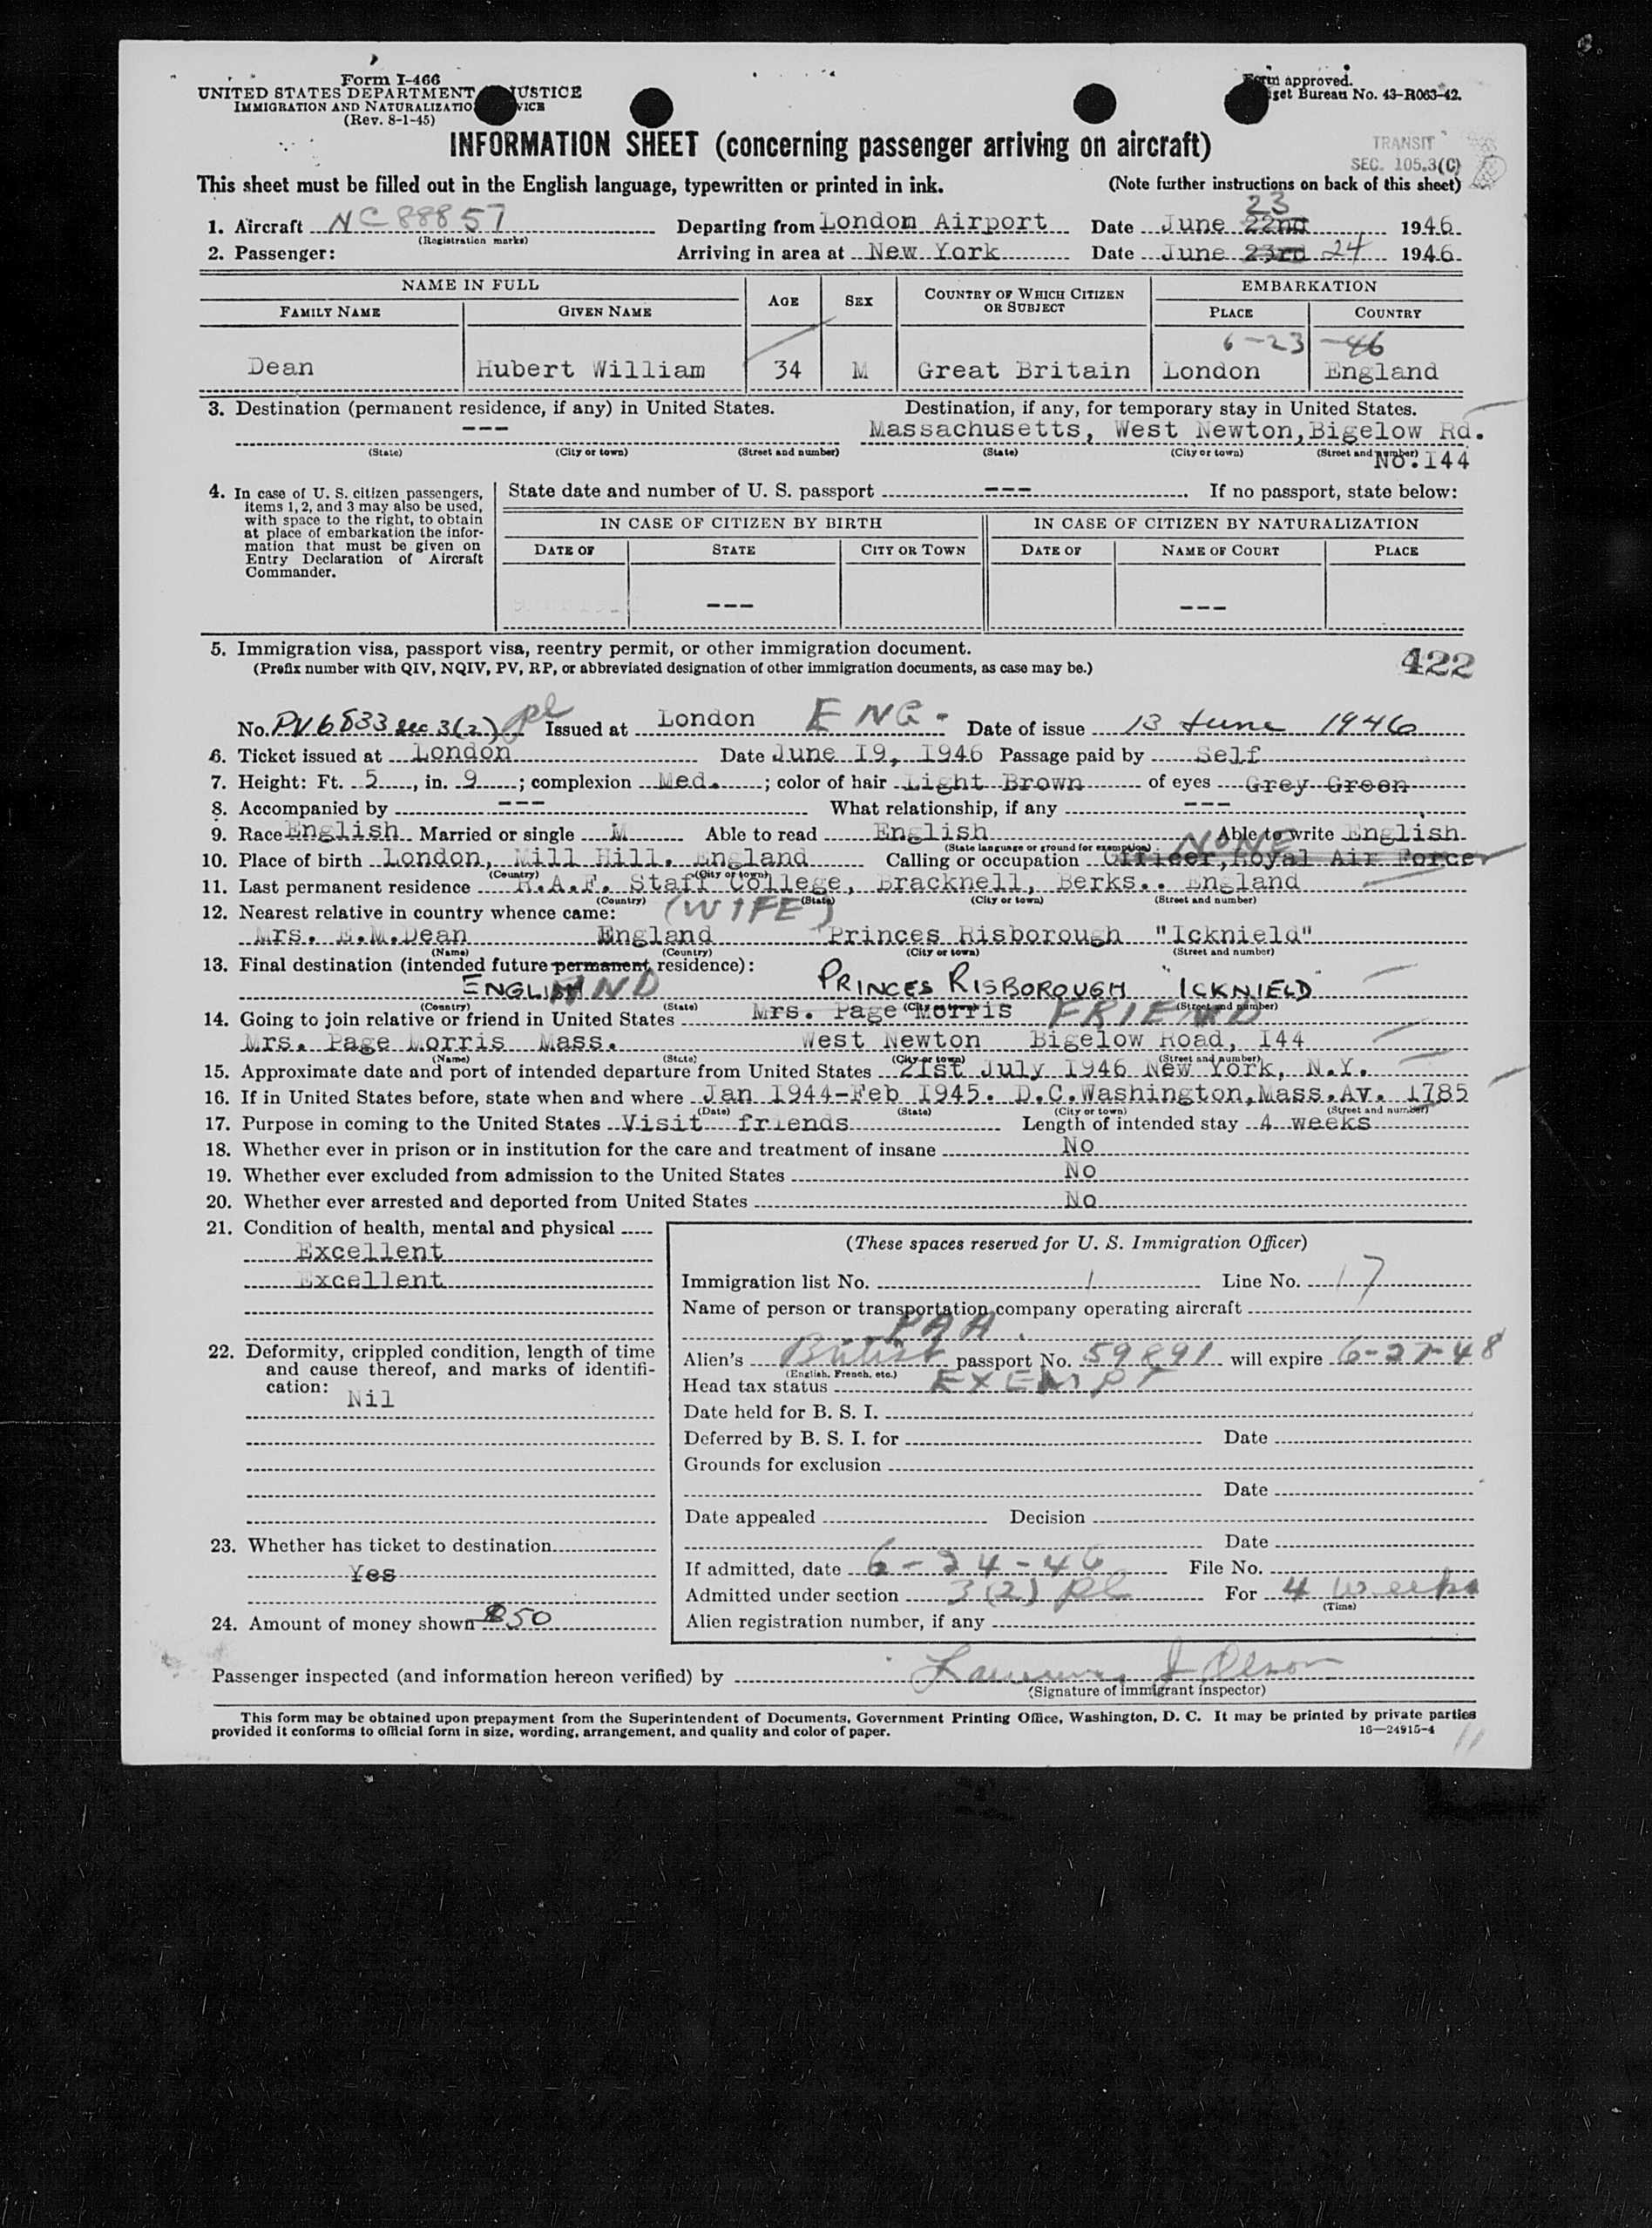 Form I-466
UNITED STATES DEPARTMENT JUSTICE
IMMIGRATION AND NATURALIZATIO VICE
(Rev. 8-1-45)
Form approved.
get Bureau No. 43-R063-42.
INFORMATION SHEET (concerning passenger arriving on aircraft)
TRANSIT
SEC. 105.3(C)
This sheet must be filled out in the English language, typewritten or printed in ink. (Note further instructions on back of this sheet)
23
1. Aircraft NC 88857 Departing from London Airport Date June 22nd 1946
(Registration marks)
2. Passenger: Arriving in area at New York Date June 23rd 24 1946
NAME IN FULL AGE SEX COUNTRY OF WHICH CITIZEN OR SUBJECT EMBARKATION
FAMILY NAME GIVEN NAME PLACE COUNTRY
6-23-46
Dean Hubert William 34 M Great Britain London England
3. Destination (permanent residence, if any) in United States. Destination, if any, for temporary stay in United States.
--- Massachusetts, West Newton, Bigelow Rd.
(State) (City or town) (Street and number) (State) (City or town) (Street and number)
No. 144
4. In case of U. S. citizen passengers, items 1, 2, and 3 may also be used, with space to the right, to obtain at place of embarkation the information that must be given on Entry Declaration of Aircraft Commander.
State date and number of U. S. passport --- . If no passport, state below:
IN CASE OF CITIZEN BY BIRTH IN CASE OF CITIZEN BY NATURALIZATION
DATE OF STATE CITY OR TOWN DATE OF NAME OF COURT PLACE
--- ---
5. Immigration visa, passport visa, reentry permit, or other immigration document.
(Prefix number with QIV, NQIV, PV, RP, or abbreviated designation of other immigration documents, as case may be.)
422
No. PV6833 sec 3(2) pl Issued at London ENG. Date of issue 13 June 1946
6. Ticket issued at London Date June 19, 1946 Passage paid by Self
7. Height: Ft. 5, in. 9; complexion Med.; color of hair Light Brown of eyes Grey Green
8. Accompanied by --- What relationship, if any ---
9. Race English Married or single M Able to read English Able to write English
(State language or ground for exemption) NONE
10. Place of birth London, Mill Hill, England Calling or occupation Officer, Royal Air Force
(Country) (City or town)
11. Last permanent residence R.A.F. Staff College, Bracknell, Berks., England
(Country) (State) (City or town) (Street and number)
12. Nearest relative in country whence came: (WIFE)
Mrs. E.M.Dean England Princes Risborough "Icknield"
(Name) (Country) (City or town) (Street and number)
13. Final destination (intended future permanent residence):
ENGLAND PRINCES RISBOROUGH "ICKNIELD"
(Country) (State) (City or town) (Street and number)
14. Going to join relative or friend in United States Mrs. Page Morris FRIEND
Mrs. Page Morris Mass. West Newton Bigelow Road, 144
(Name) (State) (City or town) (Street and number)
15. Approximate date and port of intended departure from United States 21st July 1946 New York, N.Y.
16. If in United States before, state when and where Jan 1944-Feb 1945. D.C.Washington, Mass.Av. 1785
(Date) (State) (City or town) (Street and number)
17. Purpose in coming to the United States Visit friends Length of intended stay 4 weeks
18. Whether ever in prison or in institution for the care and treatment of insane No
19. Whether ever excluded from admission to the United States No
20. Whether ever arrested and deported from United States No
21. Condition of health, mental and physical
Excellent
Excellent
22. Deformity, crippled condition, length of time and cause thereof, and marks of identification:
Nil
23. Whether has ticket to destination
Yes
24. Amount of money shown $50
(These spaces reserved for U. S. Immigration Officer)
Immigration list No. 1 Line No. 17
Name of person or transportation company operating aircraft
PAA
Alien's British passport No. 59891 will expire 6-27-48
(English, French, etc.)
Head tax status EXEMPT
Date held for B. S. I.
Deferred by B. S. I. for Date
Grounds for exclusion
Date
Date appealed Decision
Date
If admitted, date 6-24-46 File No.
Admitted under section 3(2) pl For 4 weeks
(Time)
Alien registration number, if any
Passenger inspected (and information hereon verified) by J Olson
(Signature of immigrant inspector)
This form may be obtained upon prepayment from the Superintendent of Documents, Government Printing Office, Washington, D. C. It may be printed by private parties
provided it conforms to official form in size, wording, arrangement, and quality and color of paper. 16—24915-4
11